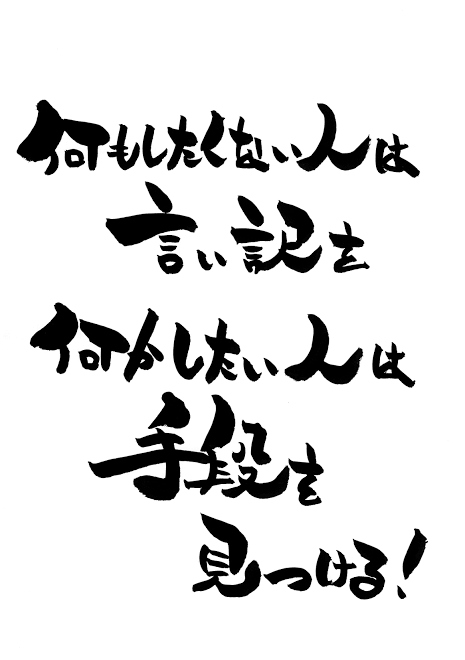 何もしたくない人は
言い訳を
何かしたい人は
手段を
見つける!